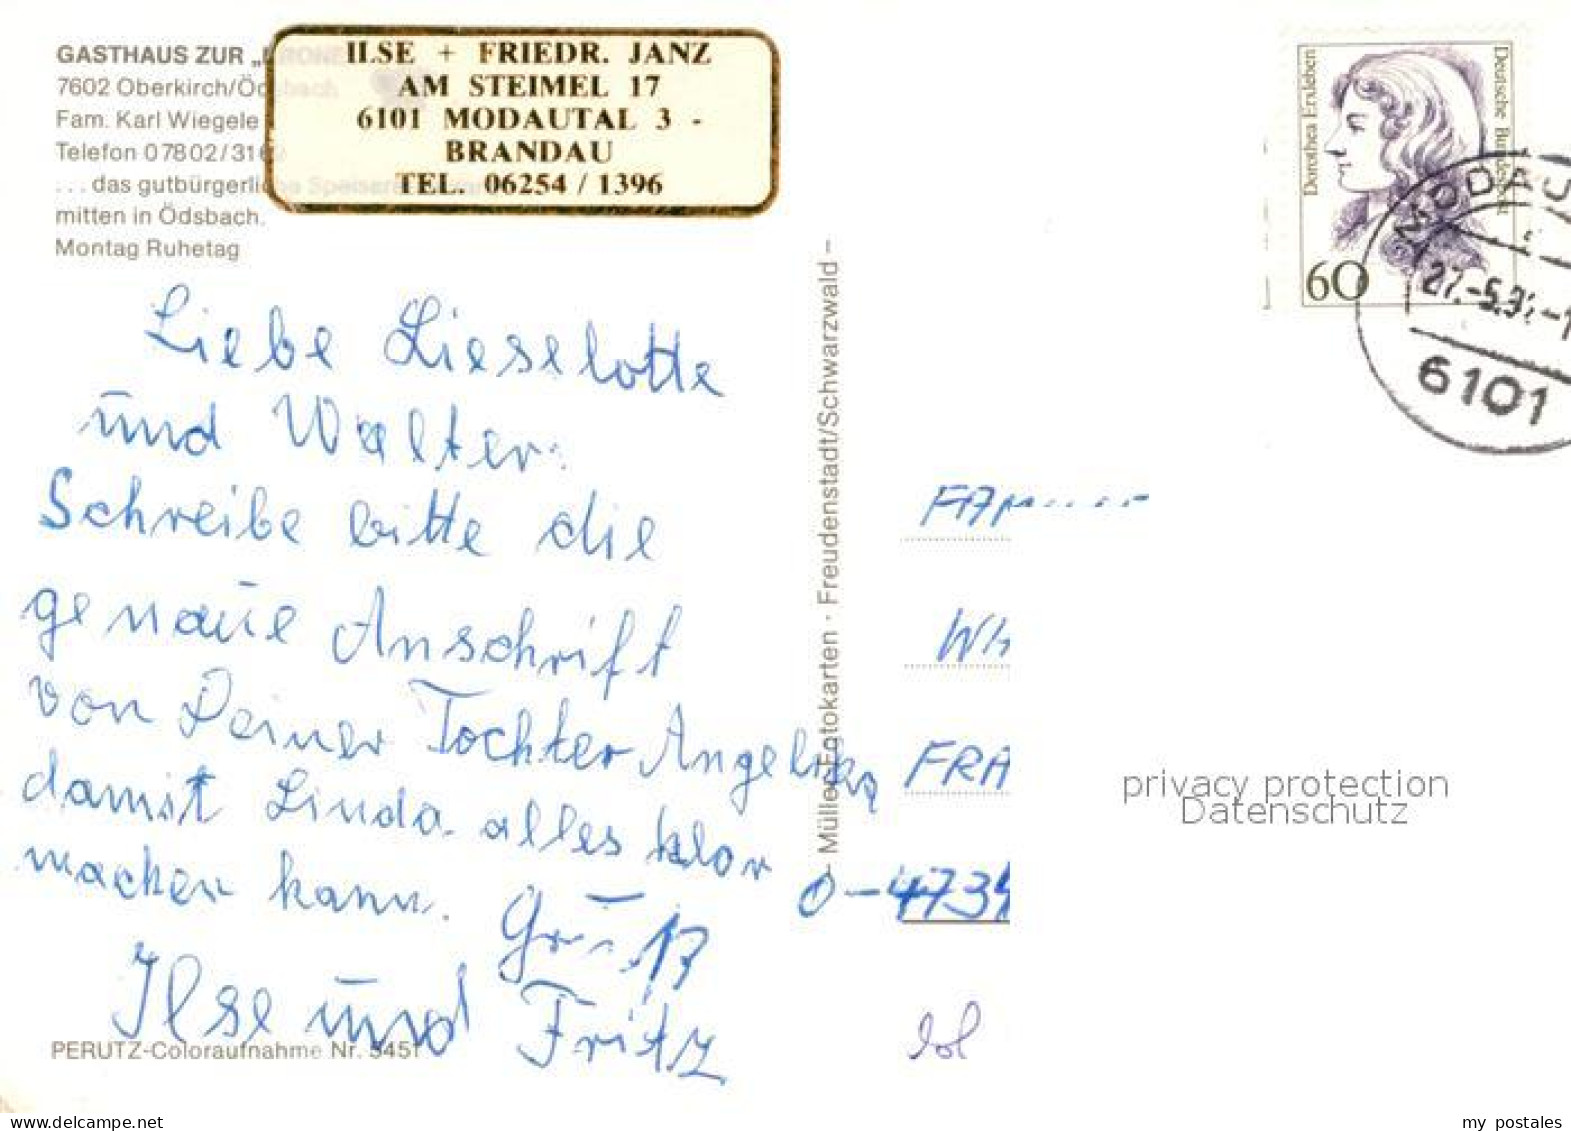 GASTHAUS ZUR „KRONE
7602 Oberkirch/Ödsbach
Fam. Karl Wiegele
Telefon 07802/316
... das gutbürgerliche Speise
mitten in Ödsbach.
Montag Ruhetag
ILSE + FRIEDR. JANZ
AM STEIMEL 17
6101 MODAUTAL 3 -
BRANDAU
TEL. 06254 / 1396
Liebe Lieselotte
und Walter.
Schreibe bitte die
genaue Anschrift
von Deiner Tochter Angelika
damit Linda alles klar
machen kann.
Gruß
Ilse und Fritz
PERUTZ-Coloraufnahme Nr. 5451
- Müller Fotokarten · Freudenstadt/Schwarzwald -
Dorothea Erxleben
Deutsche Bundespost
60
MODAU
27.-5.9
6101
FAM
WH
FRA
O-4734
privacy protection
Datenschutz
www.delcampe.net
my_postales